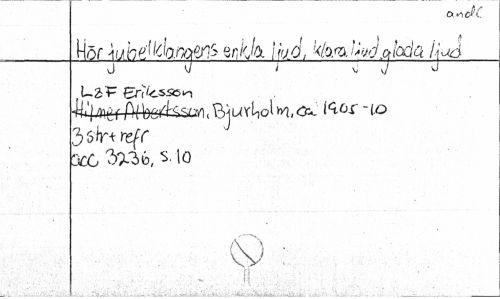 andl
Hör jubelklangens enkla ljud, klara ljud, glada ljud
L & F Eriksson
Hilmer Albertsson, Bjurholm, ca 1905-10
3 str + refr
acc 3236, s. 10